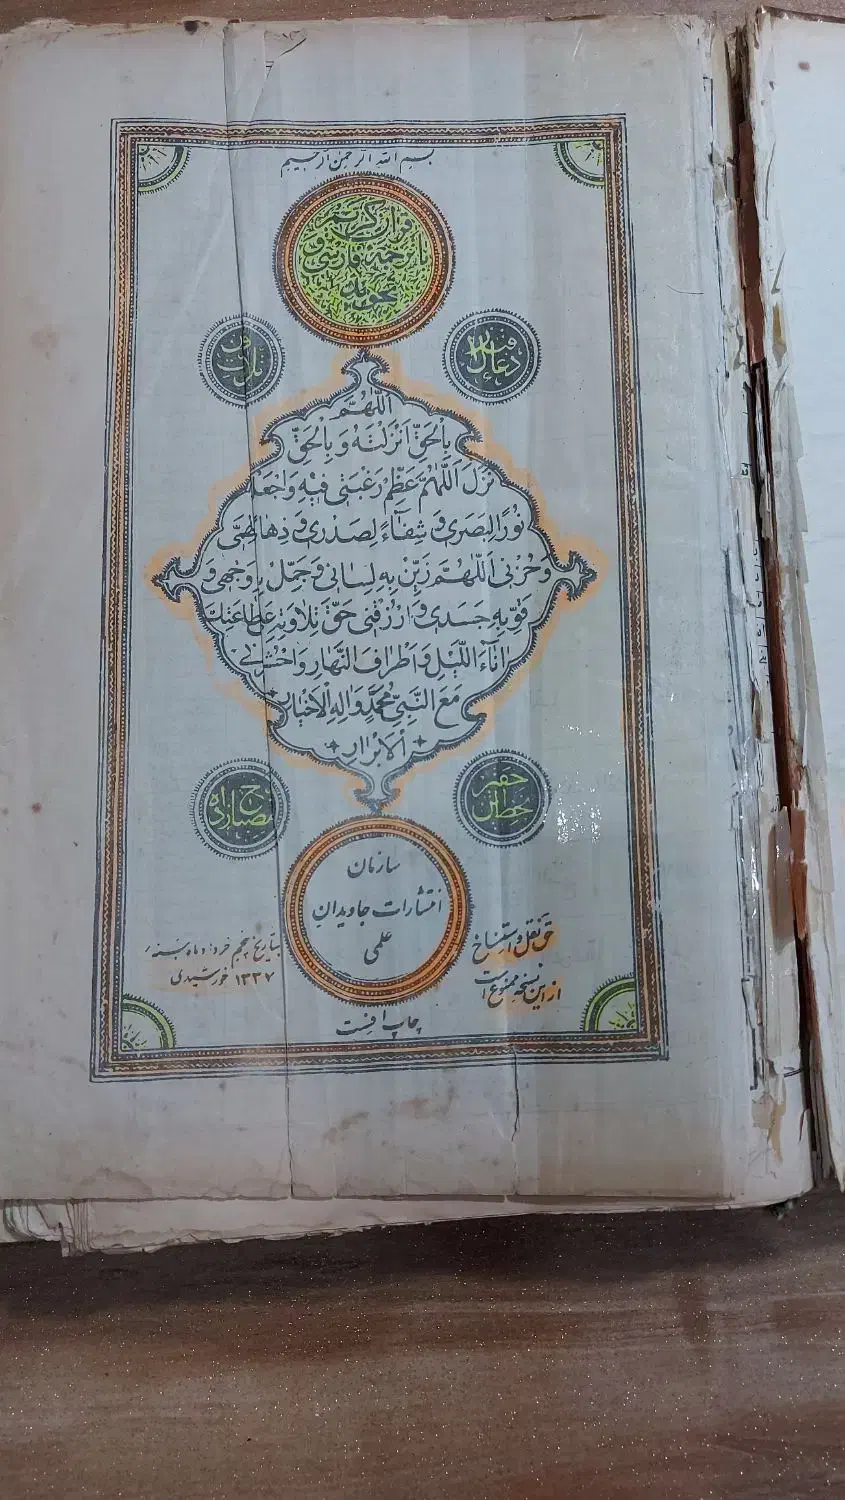 بسم الله الرحمن الرحیم
قرآن کریم
با ترجمه فارسی و
تجوید
دعای
قبل
تلاوت
اَللّهُمَّ
بِالْحَقِّ اَنْزَلْتَهُ وَ بِالْحَقِّ
نَزَلَ اَللّهُمَّ عَظِّمْ رَغْبَتی فیهِ وَاجْعَلْهُ
نُورًا لِبَصَری وَ شِفآءً لِصَدْری وَ ذِهابًا لِهَمّی
وَ حُزْنی اَللّهُمَّ زَیِّنْ بِهِ لِسانی وَ جَمِّلْ بِهِ وَجْهی وَ
قَوِّ بِهِ جَسَدی وَ ارْزُقْنی حَقَّ تِلاوَتِهِ عَلی طاعَتِکَ
انآءَ اللَّیْلِ وَ اَطْرافَ النَّهارِ وَاحْشُرْنی
مَعَ النَّبِیِّ مُحَمَّدٍ وَ الِهِ الْاَخْیارِ
اَلاَبْرارِ
سازمان
انتشارات جاویدان
علمی
حق نقل و استنساخ
از این نسخه ممنوع است
بتاریخ پنجم خرداد ماه سنه
۱۳۳۷ خورشیدی
چاپ افست